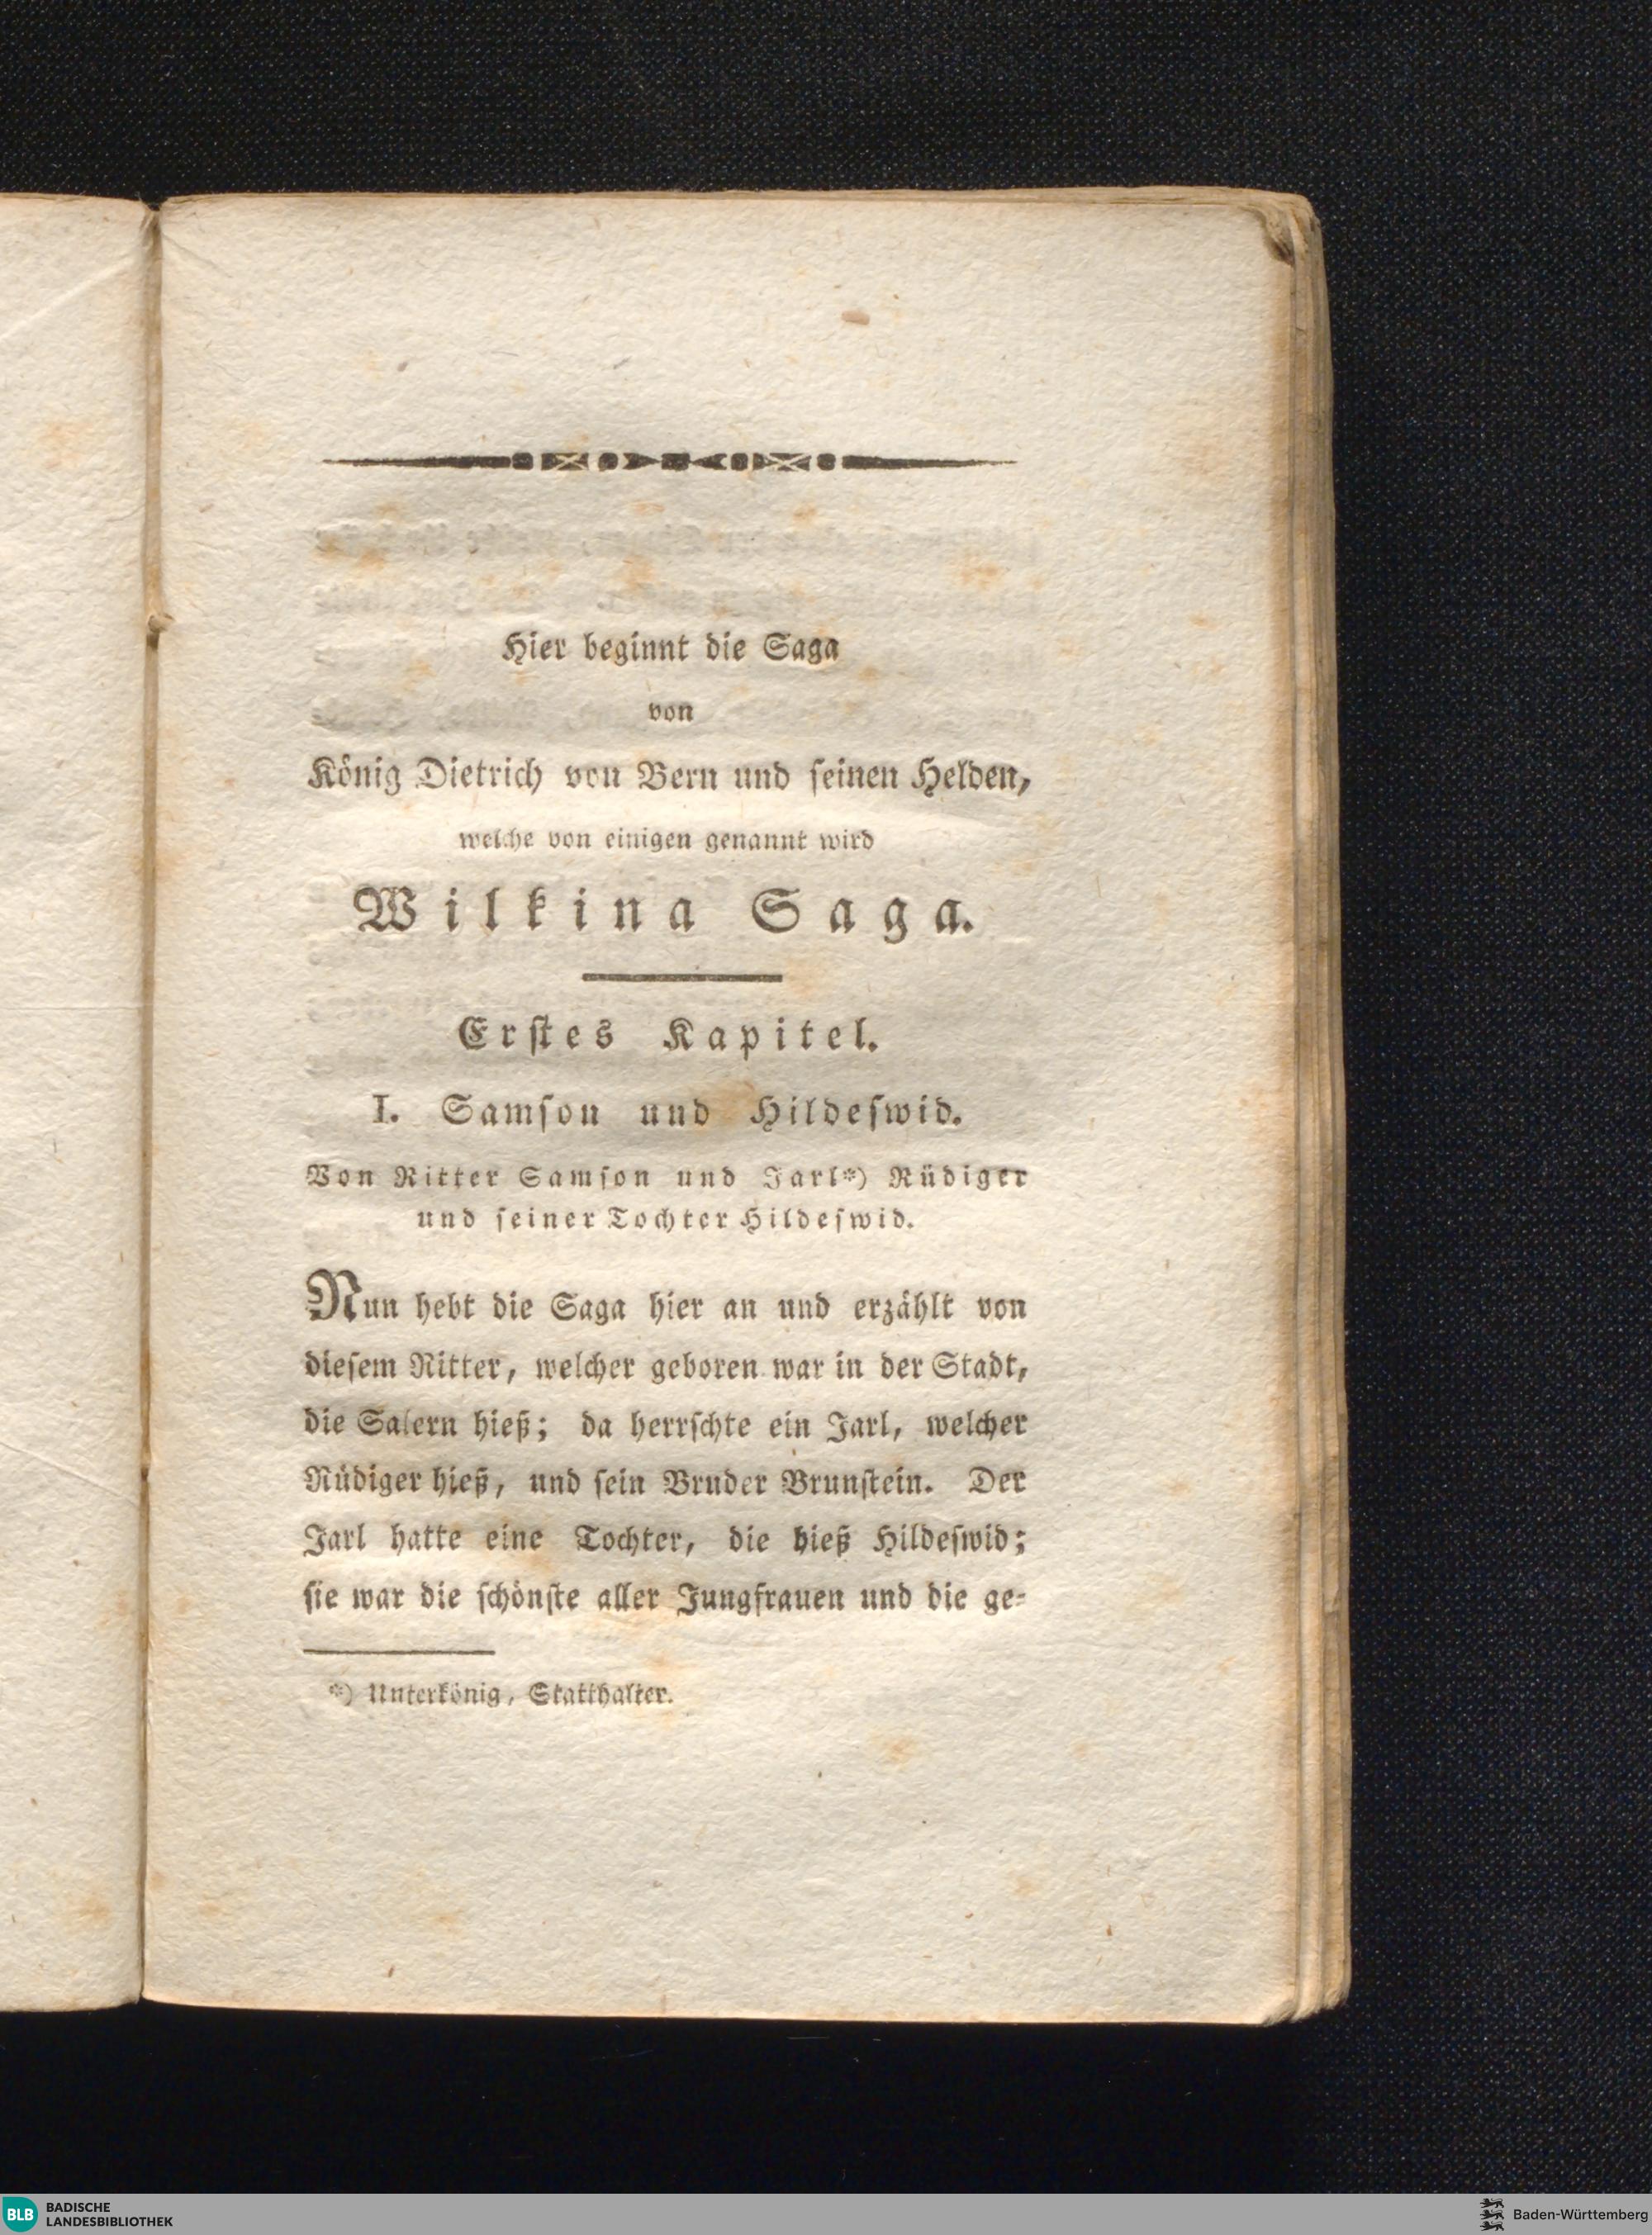 Hier beginnt die Saga
von
König Dietrich von Bern und ſeinen Helden,
welche von einigen genannt wird
Wilkina Saga.
Erſtes Kapitel.
I. Samſon und Hildeſwid.
Von Ritter Samſon und Jarl*) Rüdiger
und ſeiner Tochter Hildeſwid.
Nun hebt die Saga hier an und erzählt von
dieſem Ritter, welcher geboren war in der Stadt,
die Salern hieß; da herrſchte ein Jarl, welcher
Rüdiger hieß, und ſein Bruder Brunſtein. Der
Jarl hatte eine Tochter, die hieß Hildeſwid;
ſie war die ſchönſte aller Jungfrauen und die ge-
*) Unterkönig, Statthalter.
BLB BADISCHE
LANDESBIBLIOTHEK
Baden-Württemberg